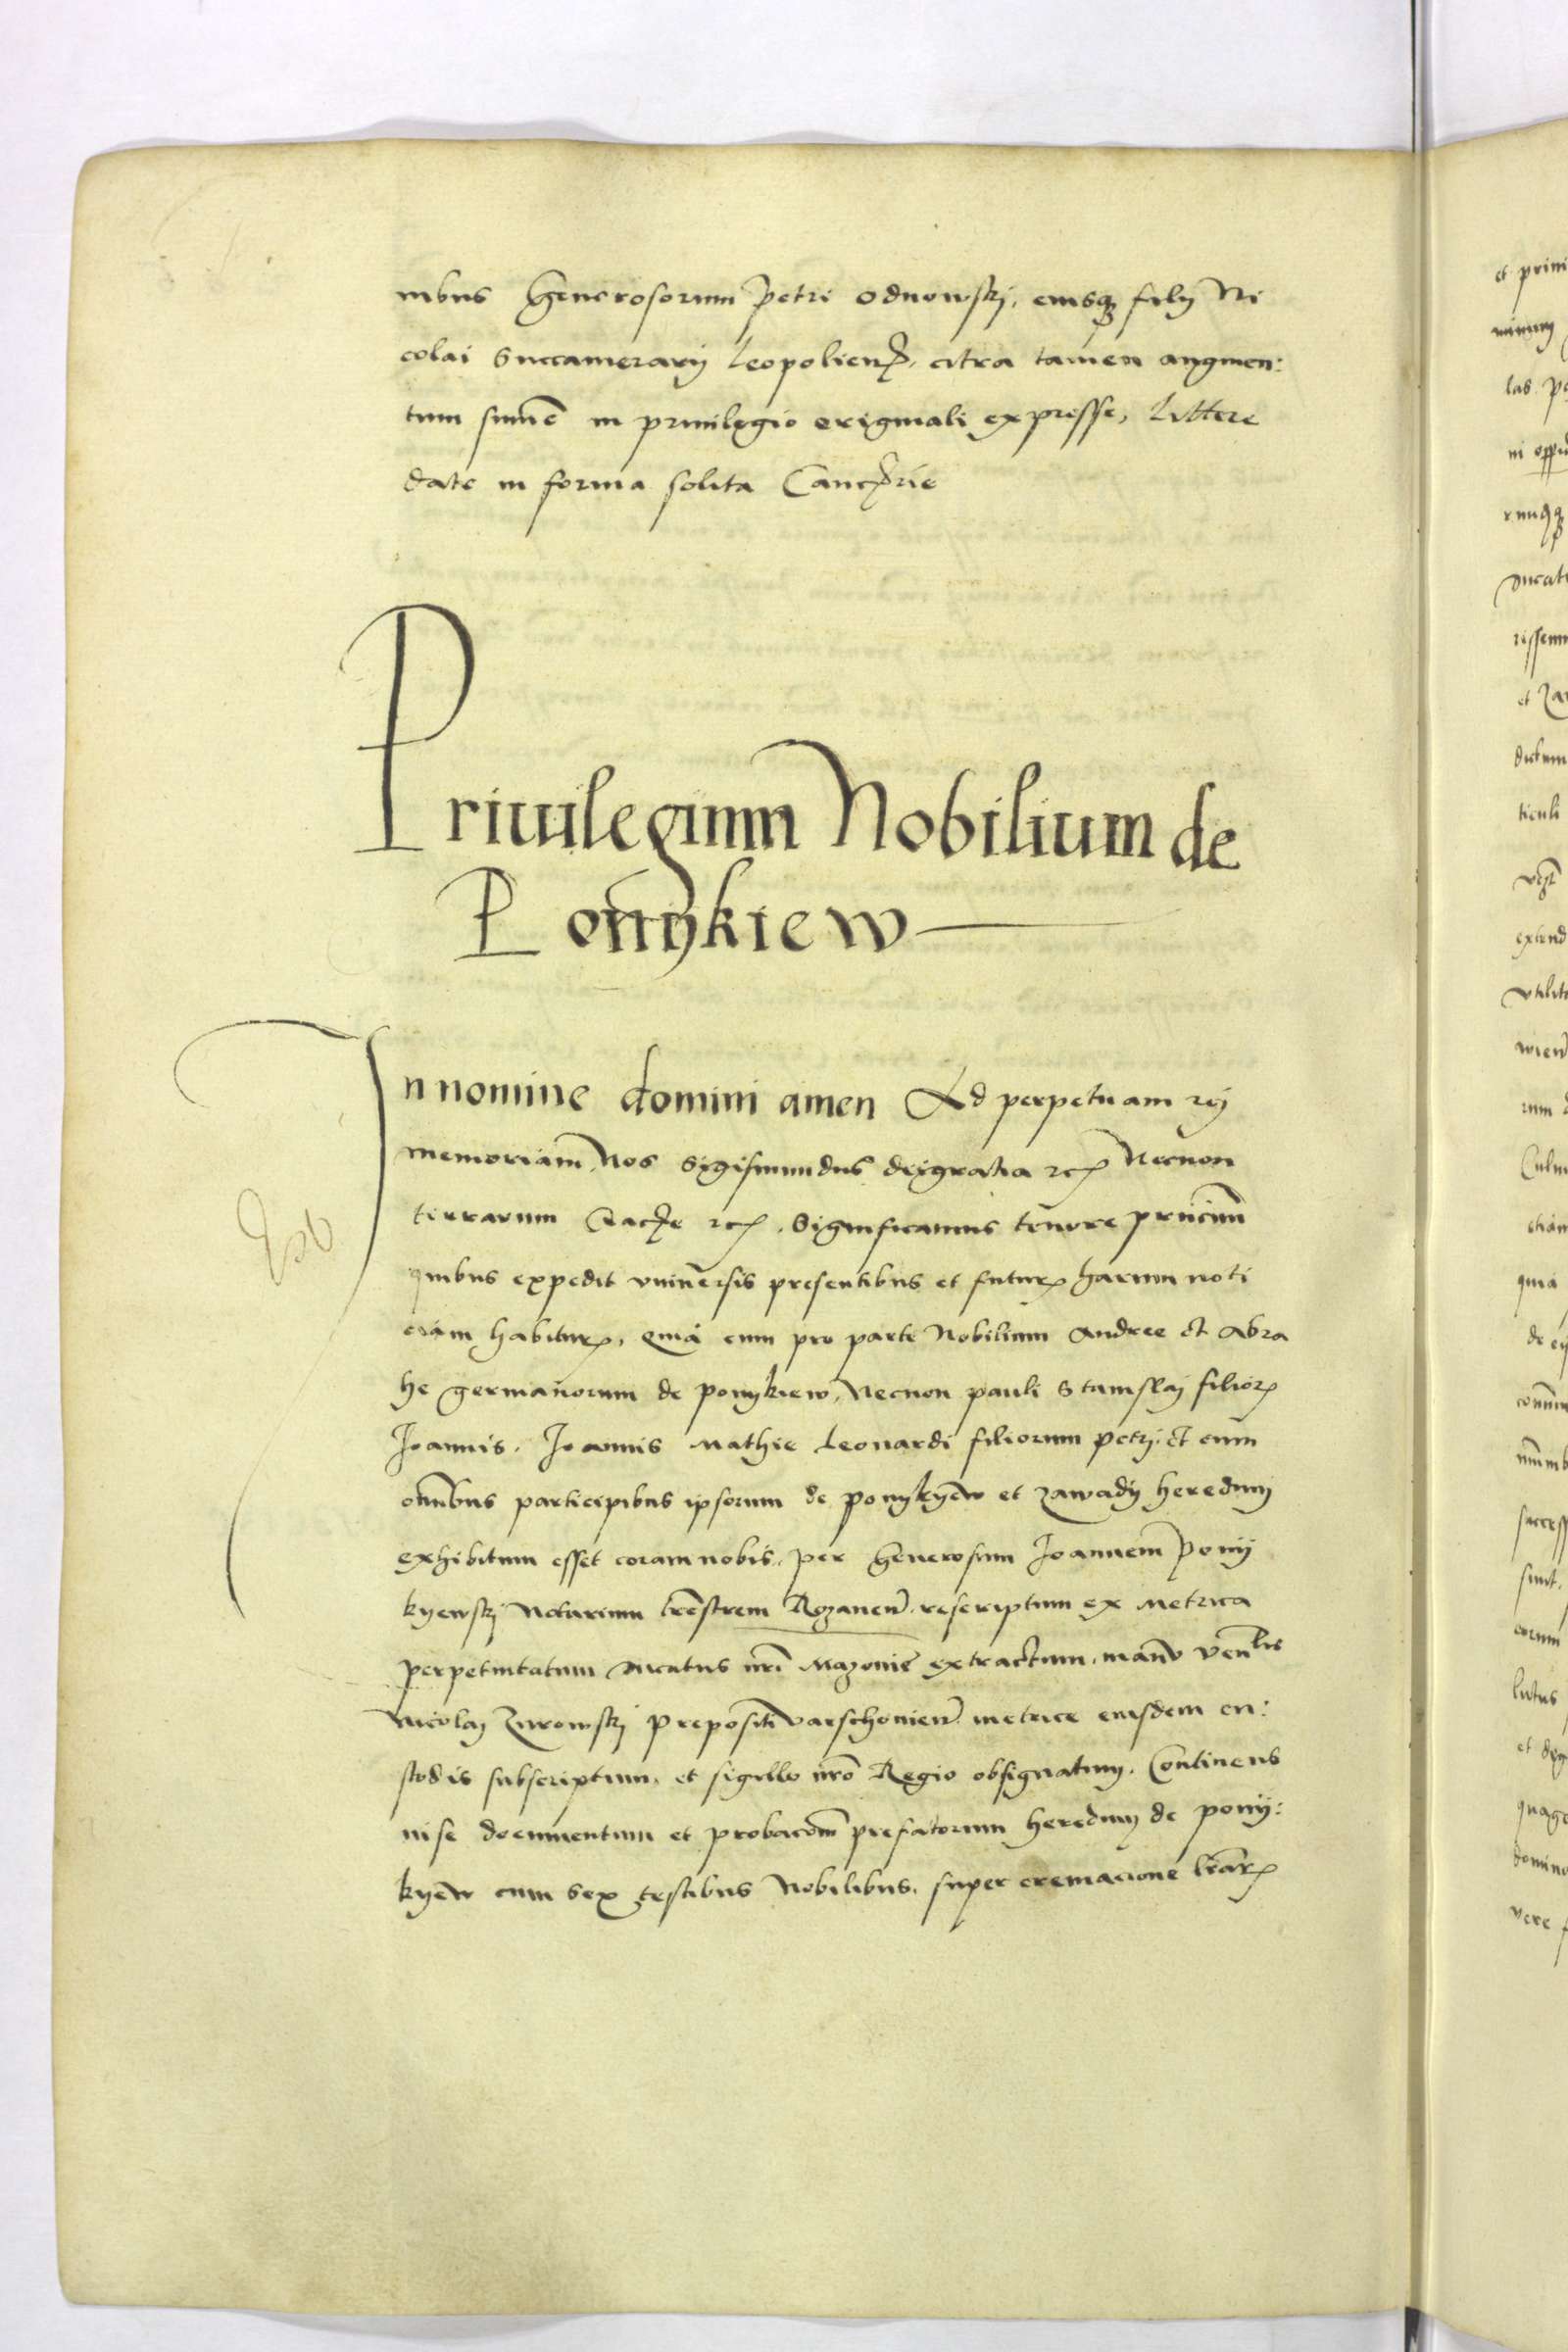 nibus Generosorum petri odnowskj, eiusq filij Ni
colai Succamerarij leopolien, citra tamen augmen:
tum sum̄e in priuilegio originali expresse, Littere
date in forma solita Cancrie
Priuilegium Nobilium de
Ponijkiew
In nomine domini amen Ad perpetuam rej
memoriam Nos Sigismundus deigratia rc Necnon
terrarum Crac̄e rc. Significamus tenore pn̄cium
quibus expedit vniuersis presentibus et futur harum noti
ciam habitur, Quia cum pro parte Nobilium Andree et Abra
he germanorum de ponykiew, Necnon pauli Stanislaj filior
Joannis, Joannis Mathie leonardi filiorum petrj. et cum
omn̄ibus participibus ipsorum de ponykyew et zawadij heredum
exhibitum esset coram nobis, per Generosum Joannem Ponij
kyewskj Notarium tr̄estrem Rozanen̄. rescriptum ex Metrica
perpetuitatum ducatus nr̄i Mazouie extractum, manu ven̄lis
Nicolaj Zurowskj prepositi varschouien̄. metrice eiusdem cu:
stodis subscriptum, et sigillo nr̄o Regio obsignatum. Continens
in se documentum et probac̄om̄ prefatorum heredum de ponij:
kyew cum sex testibus Nobilibus, super cremacione lr̄ar
et priui
las
ni
ducat
rissem
et
dictum
ticuli
extend
vtilit
wien
rum
Culm
quia
de
success
sunt.
eorum
et
domin
vere